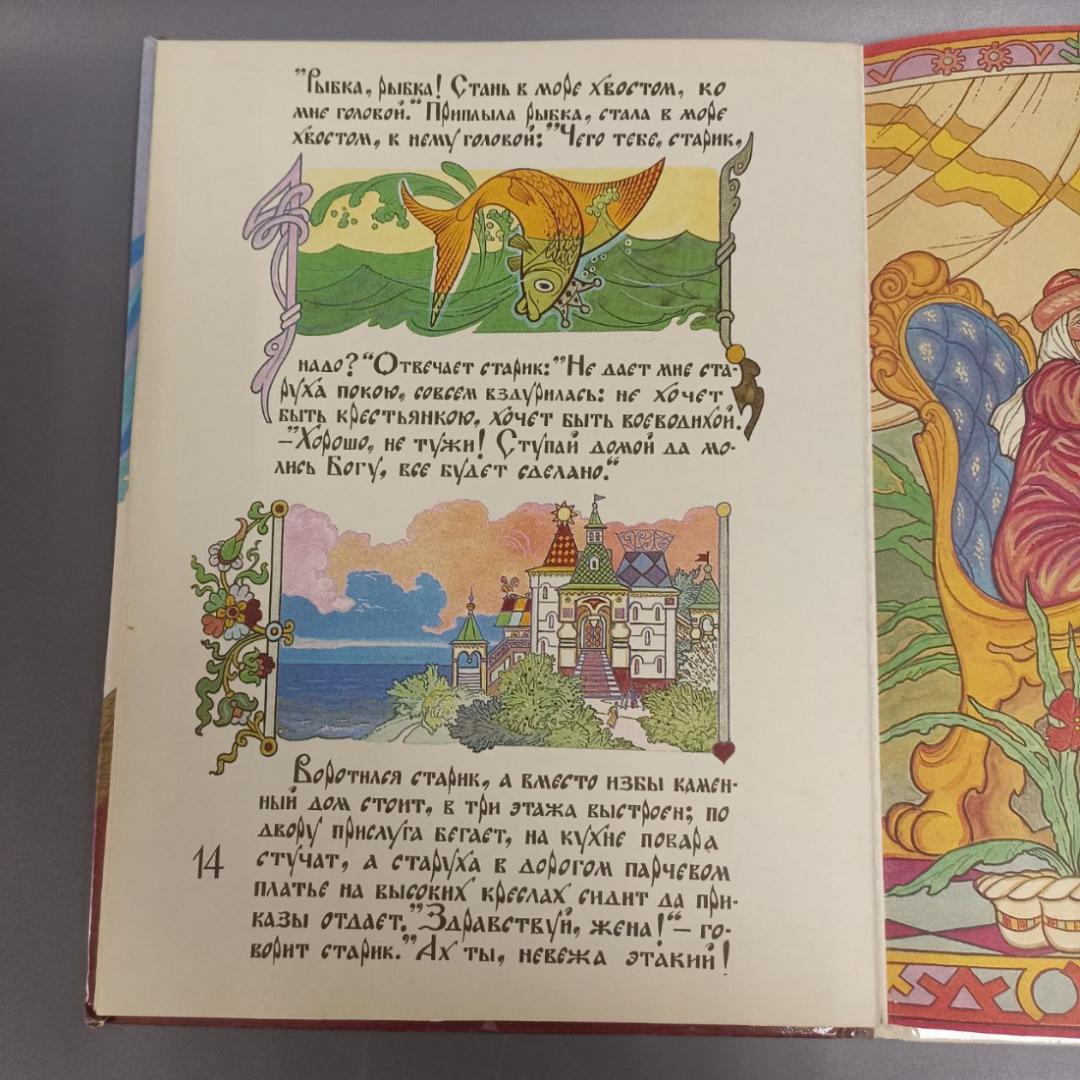 "Рыбка, рыбка! Стань в море хвостом, ко
мне головой." Приплыла рыбка, стала в море
хвостом, к нему головой: "Чего тебе, старик,
надо?" Отвечает старик: "Не дает мне ста-
руха покою, совсем вздурилась: не хочет
быть крестьянкою, хочет быть воеводихой.
– "Хорошо, не тужи! Ступай домой да мо-
лись Богу, все будет сделано."
Воротился старик, а вместо избы камен-
ный дом стоит, в три этажа выстроен; по
двору прислуга бегает, на кухне повара
стучат, а старуха в дорогом парчевом
платье на высоких креслах сидит да при-
казы отдает. "Здравствуй, жена!" – го-
ворит старик. "Ах ты, невежа этакий!
14